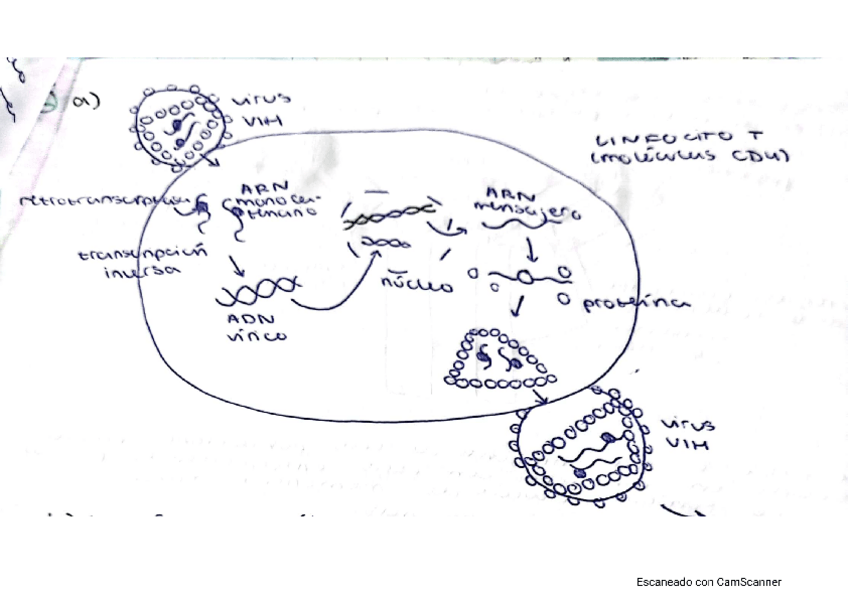 a)
virus
VIH
LINFOCITO T
(moléculas CD4)
ARN
monoca-
tenario
ARN
mensajero
transcripción
inversa
núcleo
proteína
ADN
vírico
virus
VIH
Escaneado con CamScanner